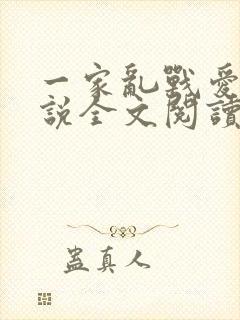 一家亂戰愛
說全文閱讀
蠱真人